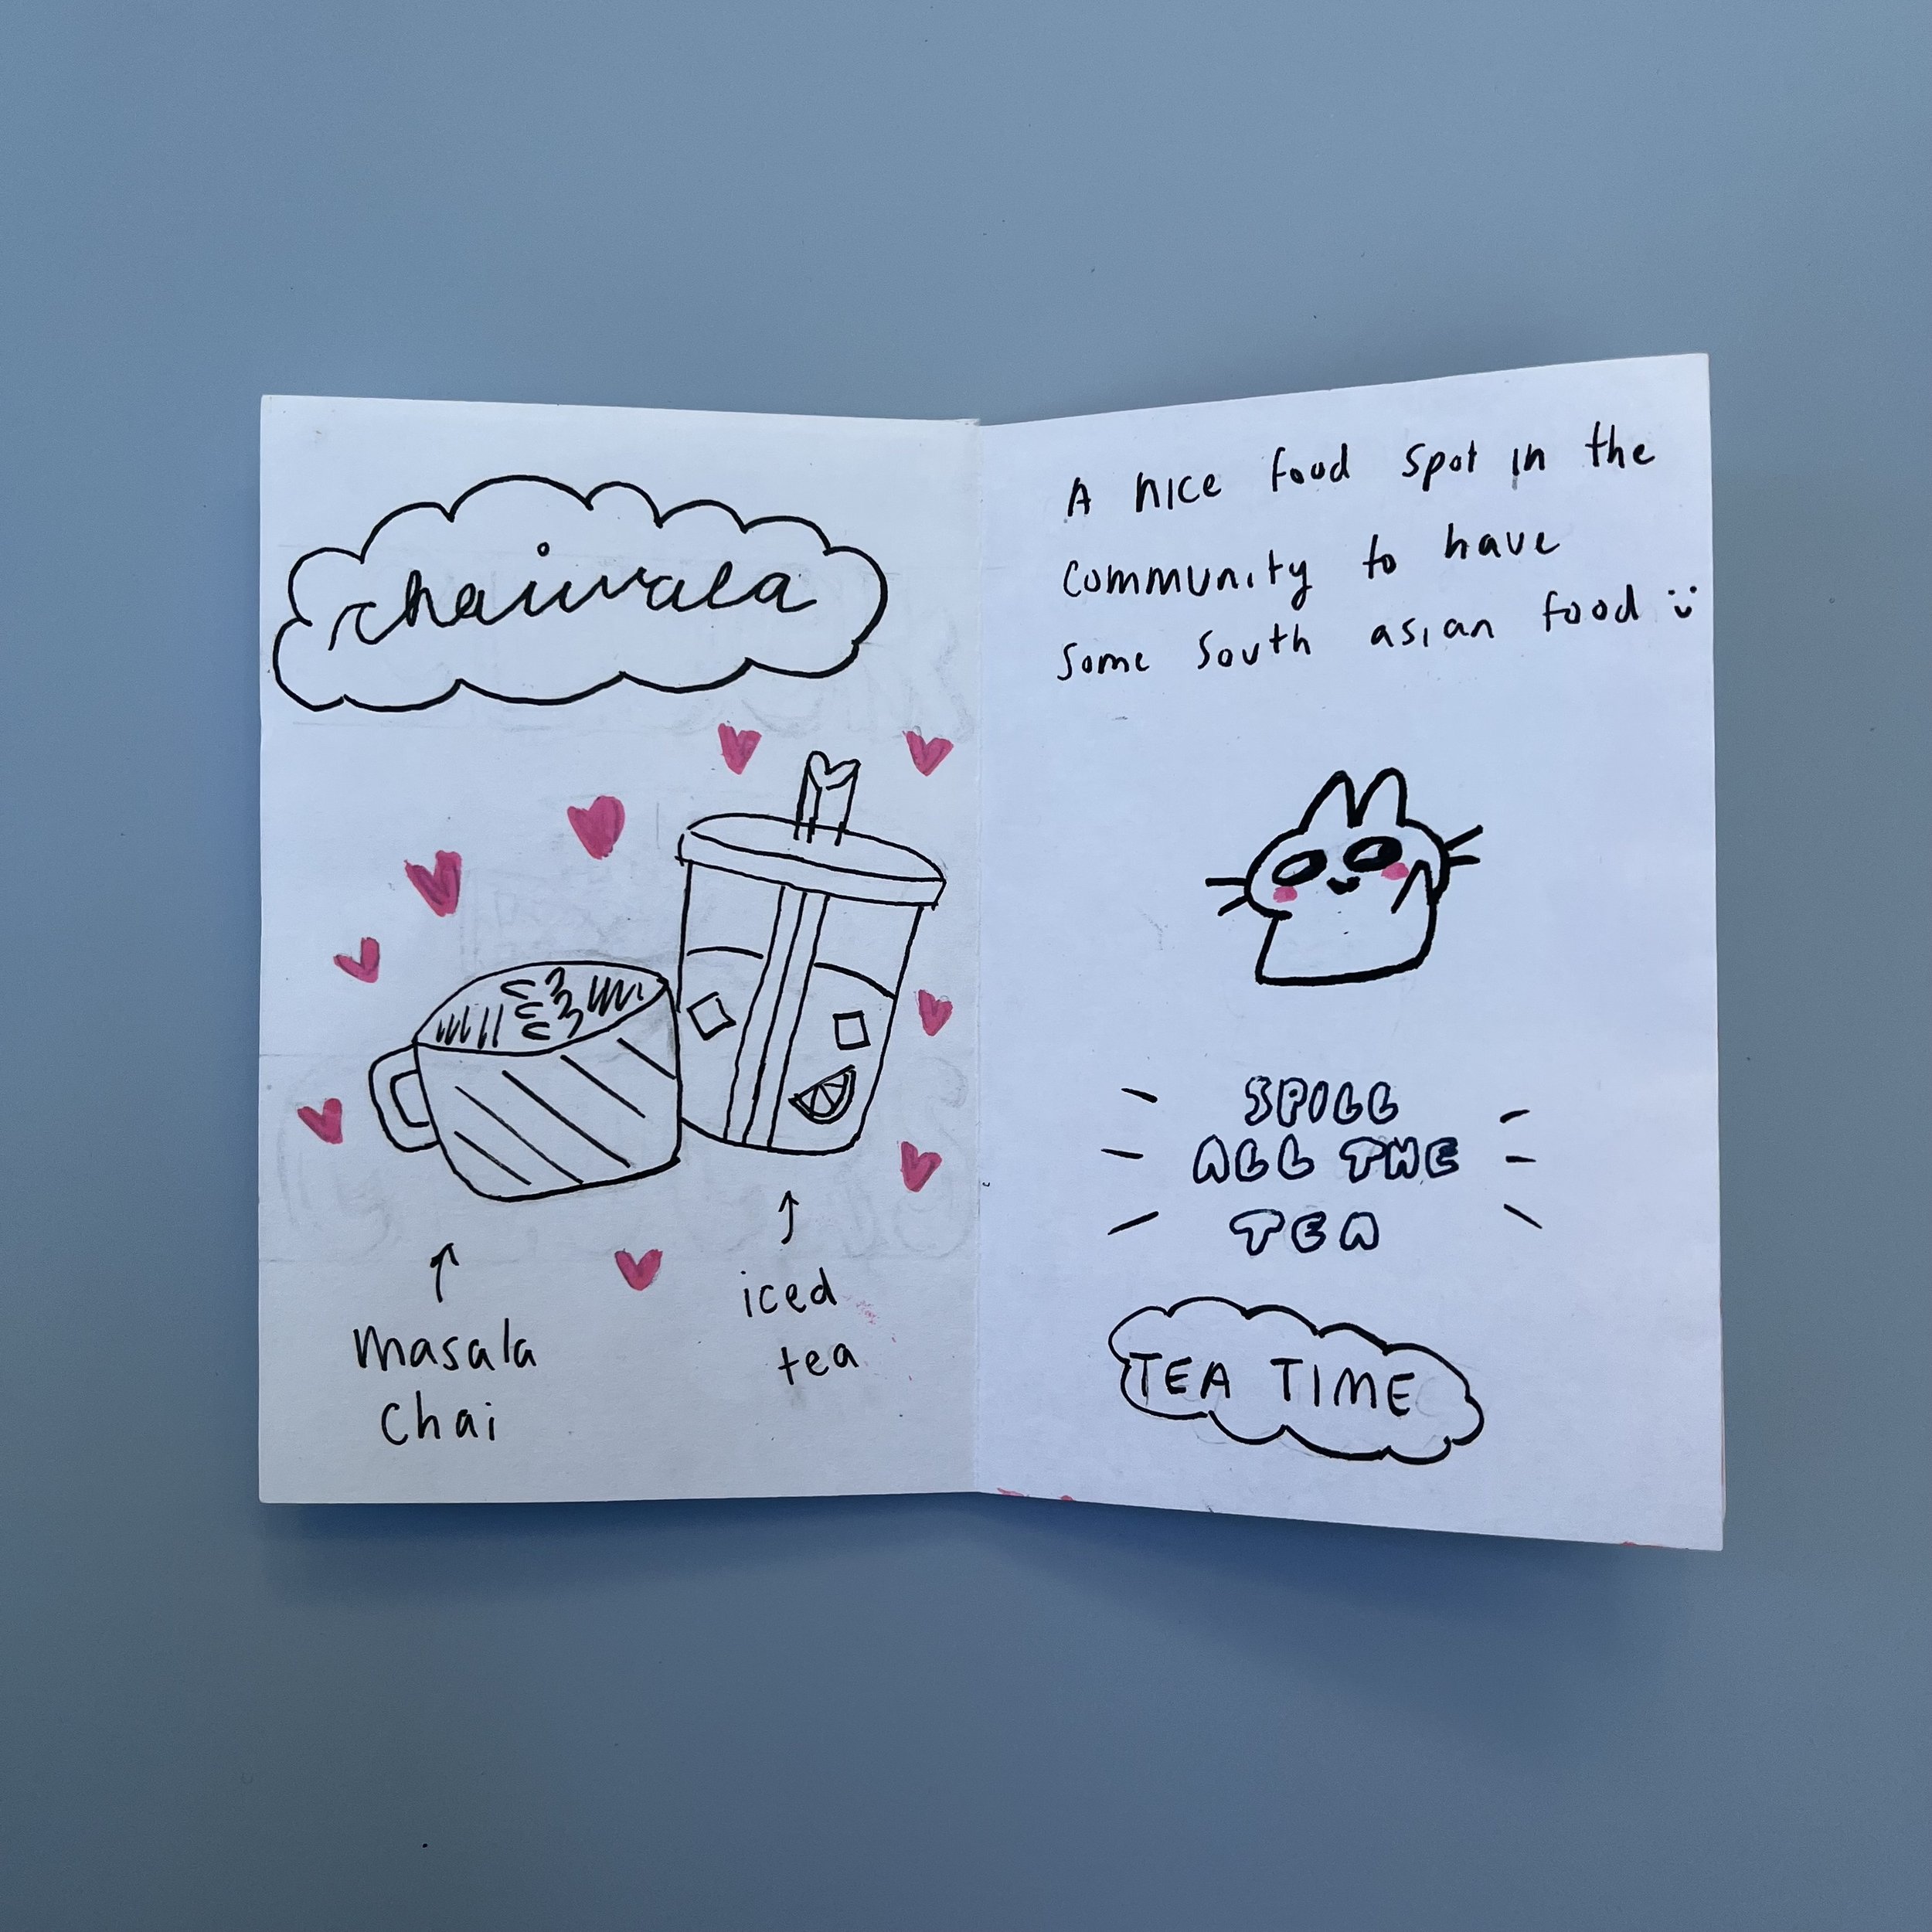 chaiwala
masala
chai
iced
tea
A nice food spot in the
community to have
some south asian food
SPILL
ALL THE
TEA
TEA TIME